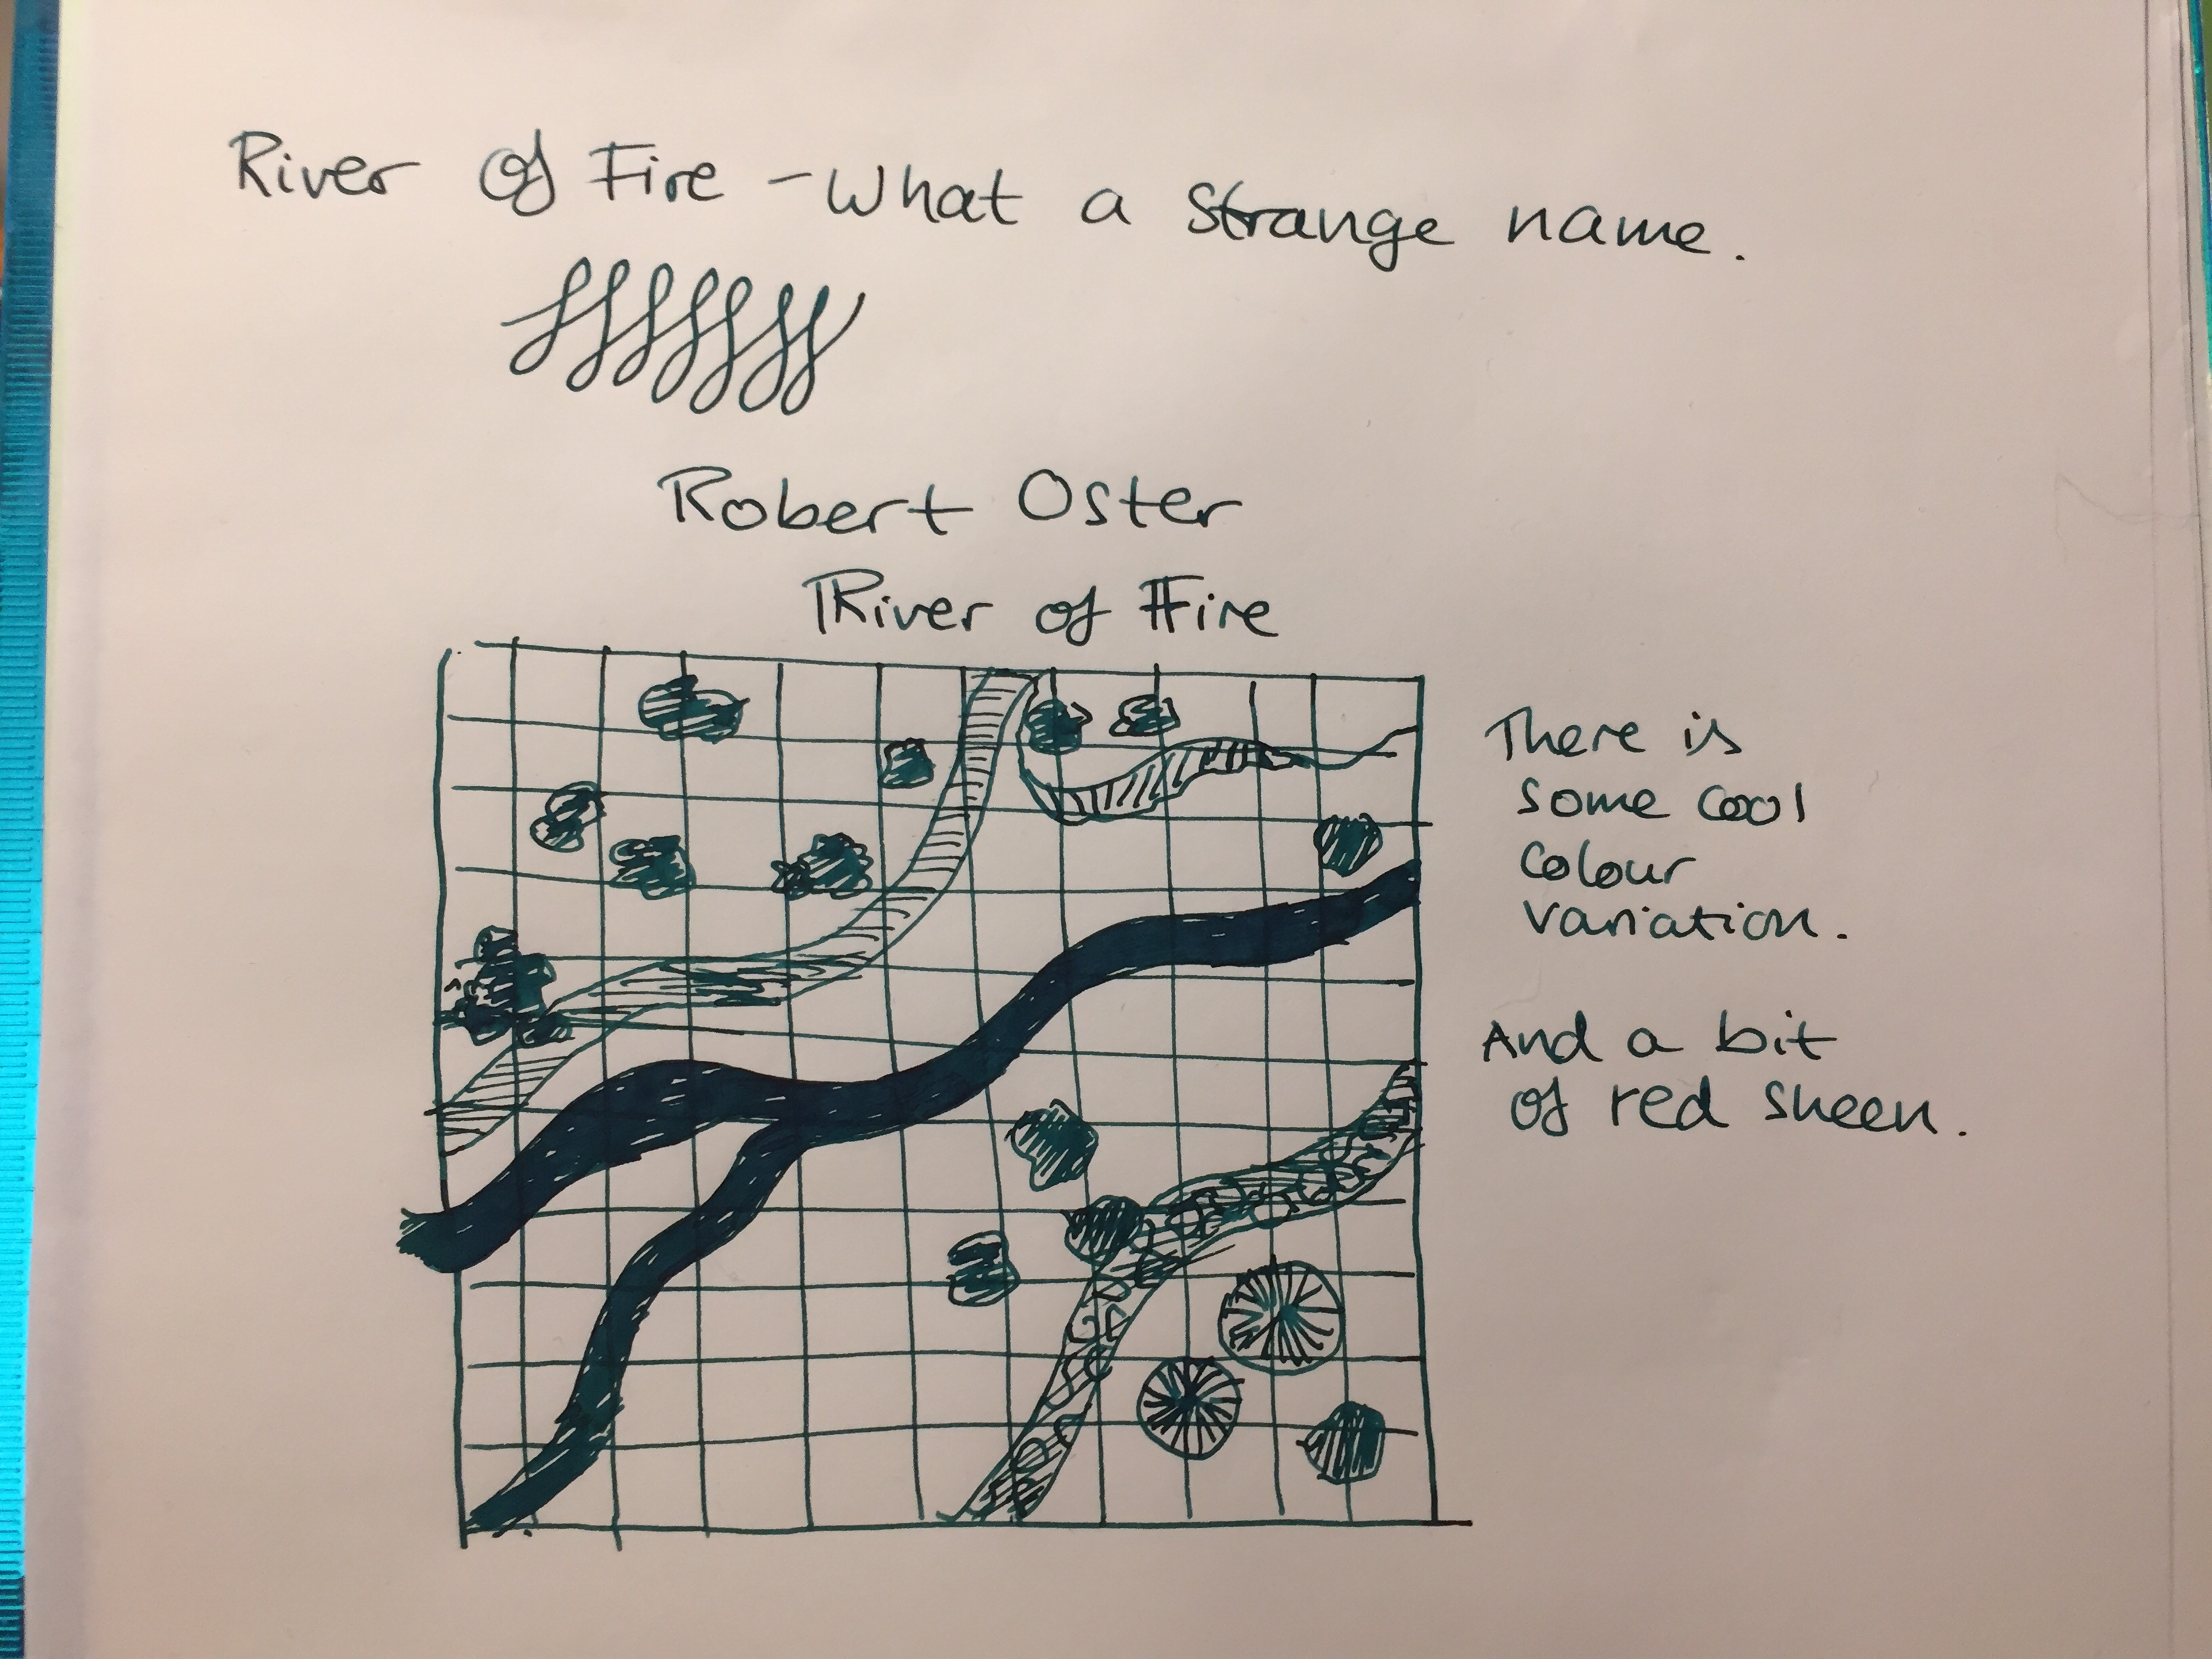 River of Fire - What a strange name.
Robert Oster
River of Fire
There is
some cool
colour
variation.
And a bit
of red sheen.